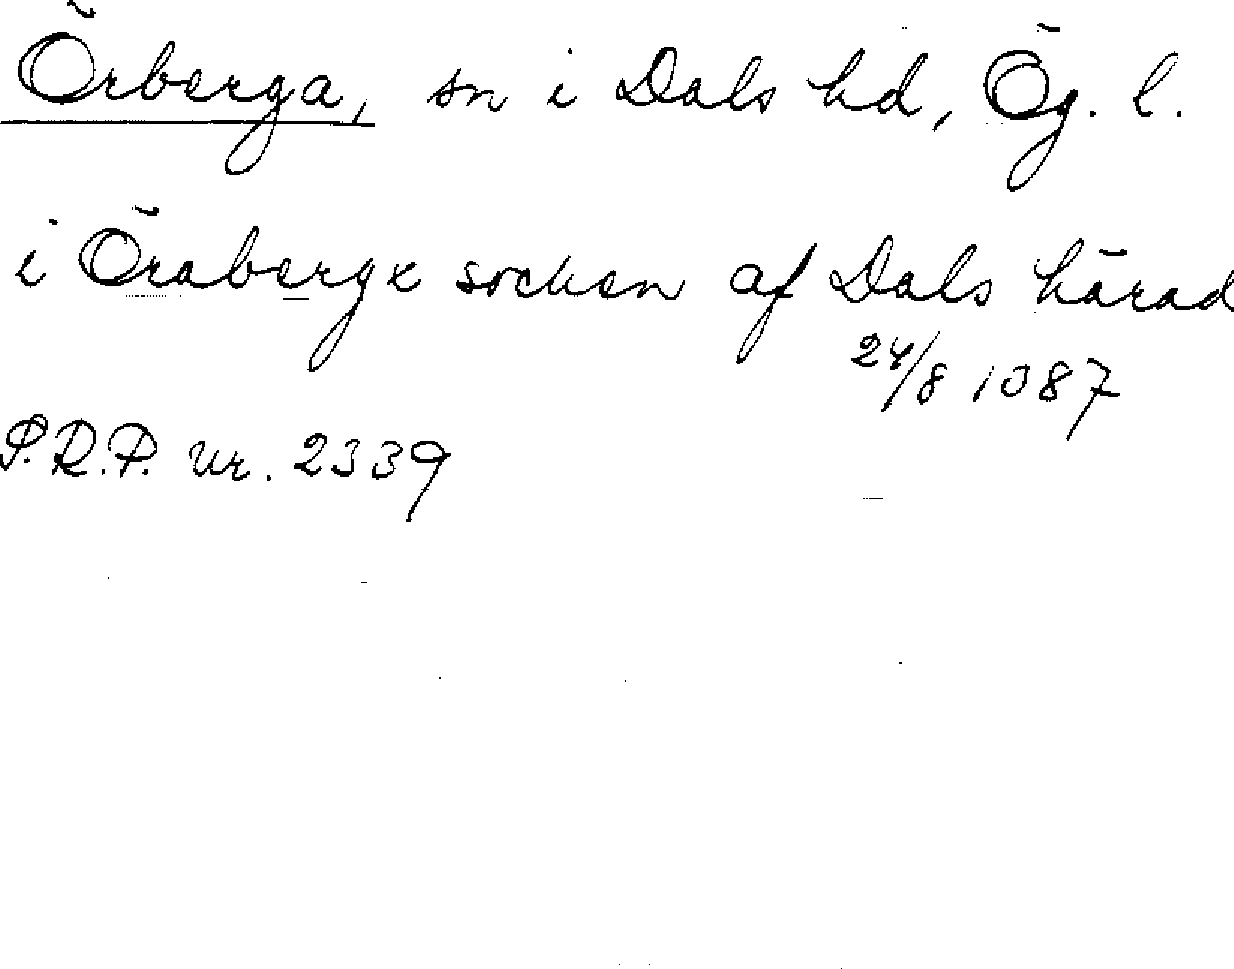 Örberga, sn i Dals hd, Ög. l.
i Öraberge socken af Dals härad
24/8 1387
P.R.P. nr. 2339